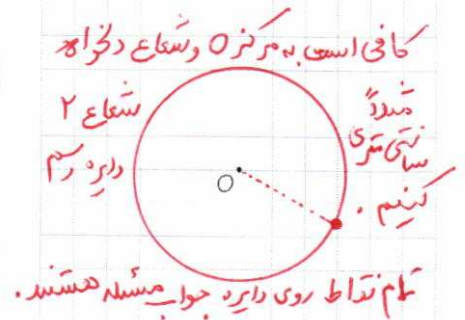 کافی است به مرکز O و شعاع دلخواه
مثلاً شعاع ۲
سانتی متری دایره رسم
کنیم.
O
تمام نقاط روی دایره جواب مسئله هستند.